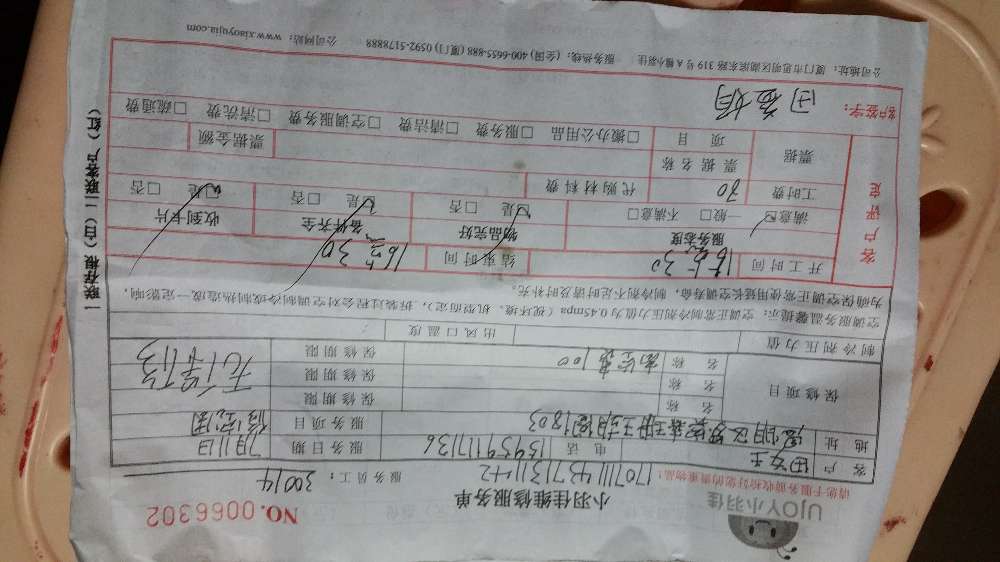 UJOY小羽佳
小羽佳维修服务单
NO. 0066302
请您于服务前检收好您的贵重物品!
服务员工: 30014
客户 田女士 电话 13959117136 服务日期 7月11日
地址 服务项目
保修项目
名称 保修期限
名称 保修期限
名称 100 保修期限
制冷剂压力值 出风口温度
空调服务温馨提示: 空调正常制冷剂压力值为0.45mpa(视环境、机型而定), 拆装过程会对空调制冷或制热造成一定影响,
为确保空调正常使用延长空调寿命, 制冷剂不足时请及时补充。
客户评定
开工时间 15点30 结束时间 16点30
服务态度 物品完好 备件齐全 收到卡片
☑满意 □一般 □不满意 ☑是 □否 ☑是 □否 ☑是 □否
工时费 30 代购材料费
票据 票据名称 票据金额
项目 □搬办公用品 □服务费 □清洁费 □空调服务费 □清洗费 □疏通费
客户签字:
公司地址: 厦门市思明区湖滨东路319号A幢小羽佳 服务热线: (全国) 400-6655-888 (厦门) 0592-5178888 公司网站: www.xiaoyujia.com
一联存根(白)二联客户(红)